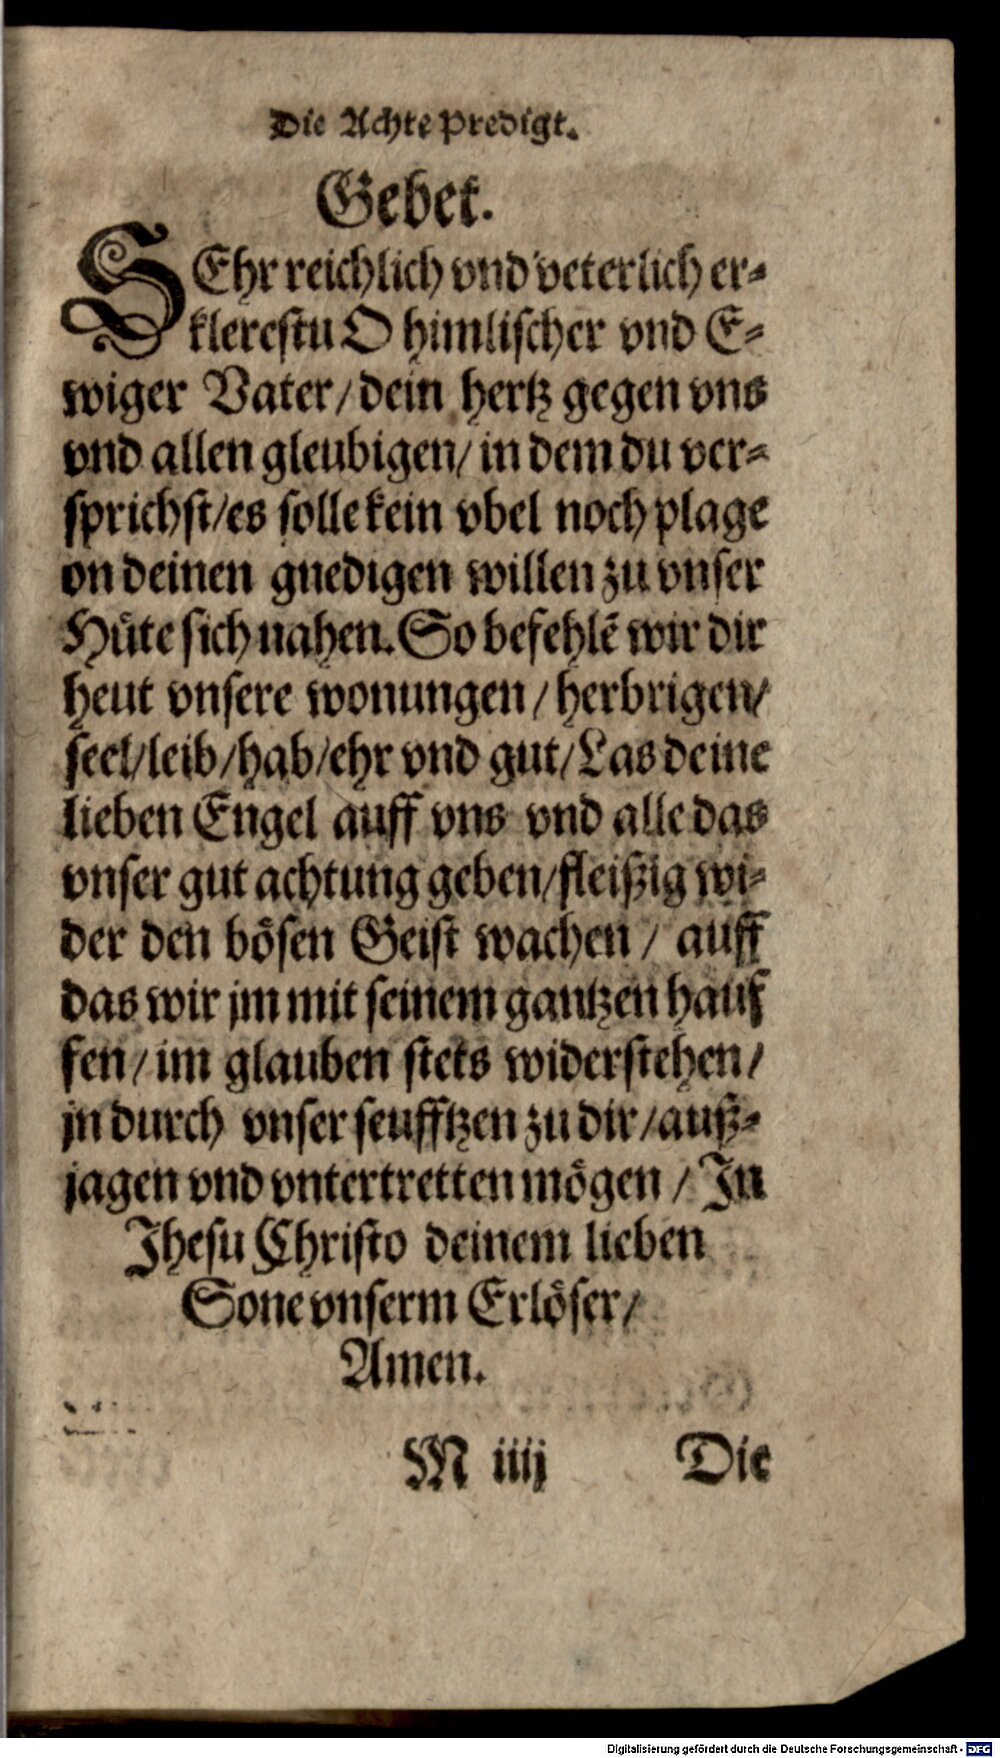 Die Achte Predigt.
Gebet.
SEhr reichlich vnd veterlich er-
klerestu O himlischer vnd E-
wiger Vater/ dein hertz gegen vns
vnd allen gleubigen/ in dem du ver-
sprichst/ es solle kein vbel noch plage
on deinen gnedigen willen zu vnser
Hüte sich nahen. So befehlē wir dir
heut vnsere wonungen / herbrigen/
seel/ leib/ hab/ ehr vnd gut/ Las deine
lieben Engel auff vns vnd alle das
vnser gut achtung geben/ fleißig wi-
der den bösen Geist wachen / auff
das wir jm mit seinem gantzen hauf
fen/ im glauben stets widerstehen/
jn durch vnser seufftzen zu dir/ auß-
jagen vnd vntertretten mögen / In
Jhesu Christo deinem lieben
Sone vnserm Erlöser/
Amen.
M iiij Die
Digitalisierung gefördert durch die Deutsche Forschungsgemeinschaft - DFG